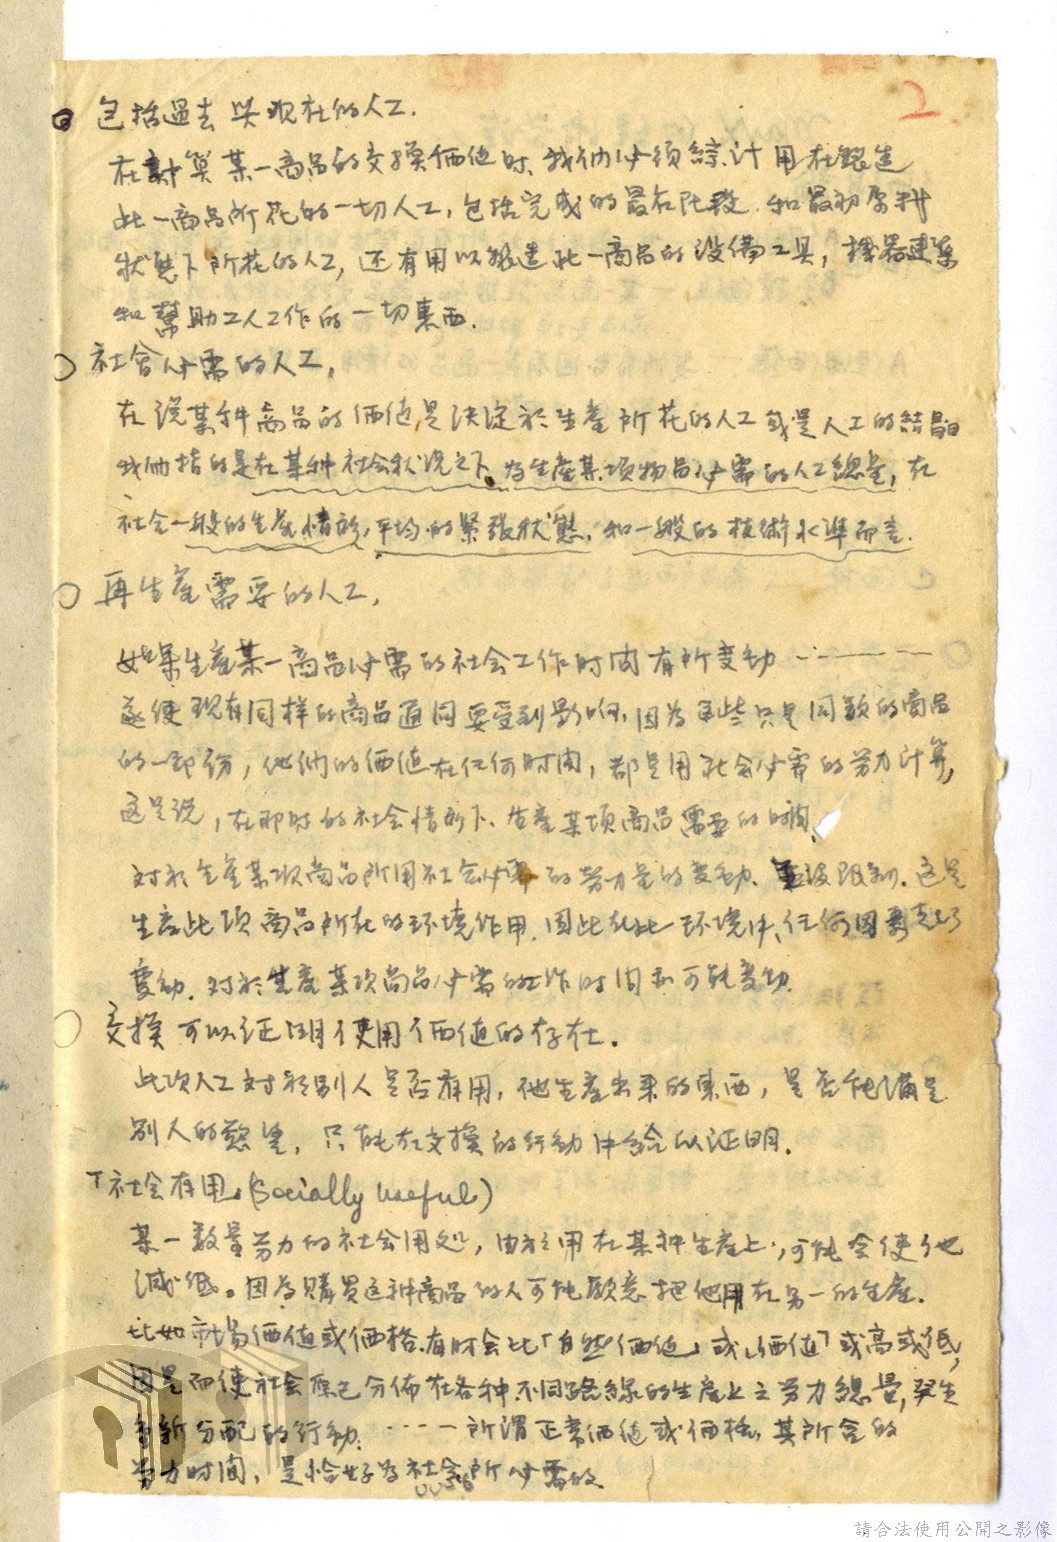 2
包括過去與現在的人工.
在計算某一商品的交換価值時、我们必須綜計用在鍛造
此一商品所花的一切人工,包括完成的最后阶段.和最初原料
狀態下所花的人工,还有用以鍛造此一商品的设備工具,機器建築
和幫助工人工作的一切東西.
社會必需的人工,
在说某件商品的価值是決定於生產所花的人工或是人工的結晶
我们指的是在某种社会狀况之下,为生産某项物品必需的人工總量,在
社会一般的生產情形,平均的緊張狀態,和一般的技術水準而言.
再生産需要的人工,
如果生産某一商品必需的社会工作时间有所变动
遂使现有同样的商品通同要受到影响,因为這些只是同類的商品
的一部份,他们的価值在任何时间,都是用社会必需的劳力计算,
这是说,在那时的社会情形下、生產某项商品需要的时间、
対於生產某项商品所用社会必需的勞力量的变动、並没限制.这是
生產此项商品所在的环境作用.因此在此一环境中、任何因素起了
变动.対於生產某项商品必需的工作时间都可能变动.
交換可以证明使用価值的存在.
此项人工対於别人是否有用,他生産出来的東西,是否能满足
别人的慾望,只能在交換的行动中给以证明.
「社会有用」(Socially useful)
某一数量劳力的社会用処,由於用在某种生産上,可能会使他
減低。因為購買这种商品的人可能願意把他用在另一的生産.
比如市场価值或価格.有时会比「自然価值」或「価值」或高或低,
因是而使社会原已分佈在各种不同路線的生產上之劳力總量,發生
重新分配的行动. 所謂正常価值或価格,其所含的
劳力时间,是恰好为社会所必需的
請合法使用公開之影像